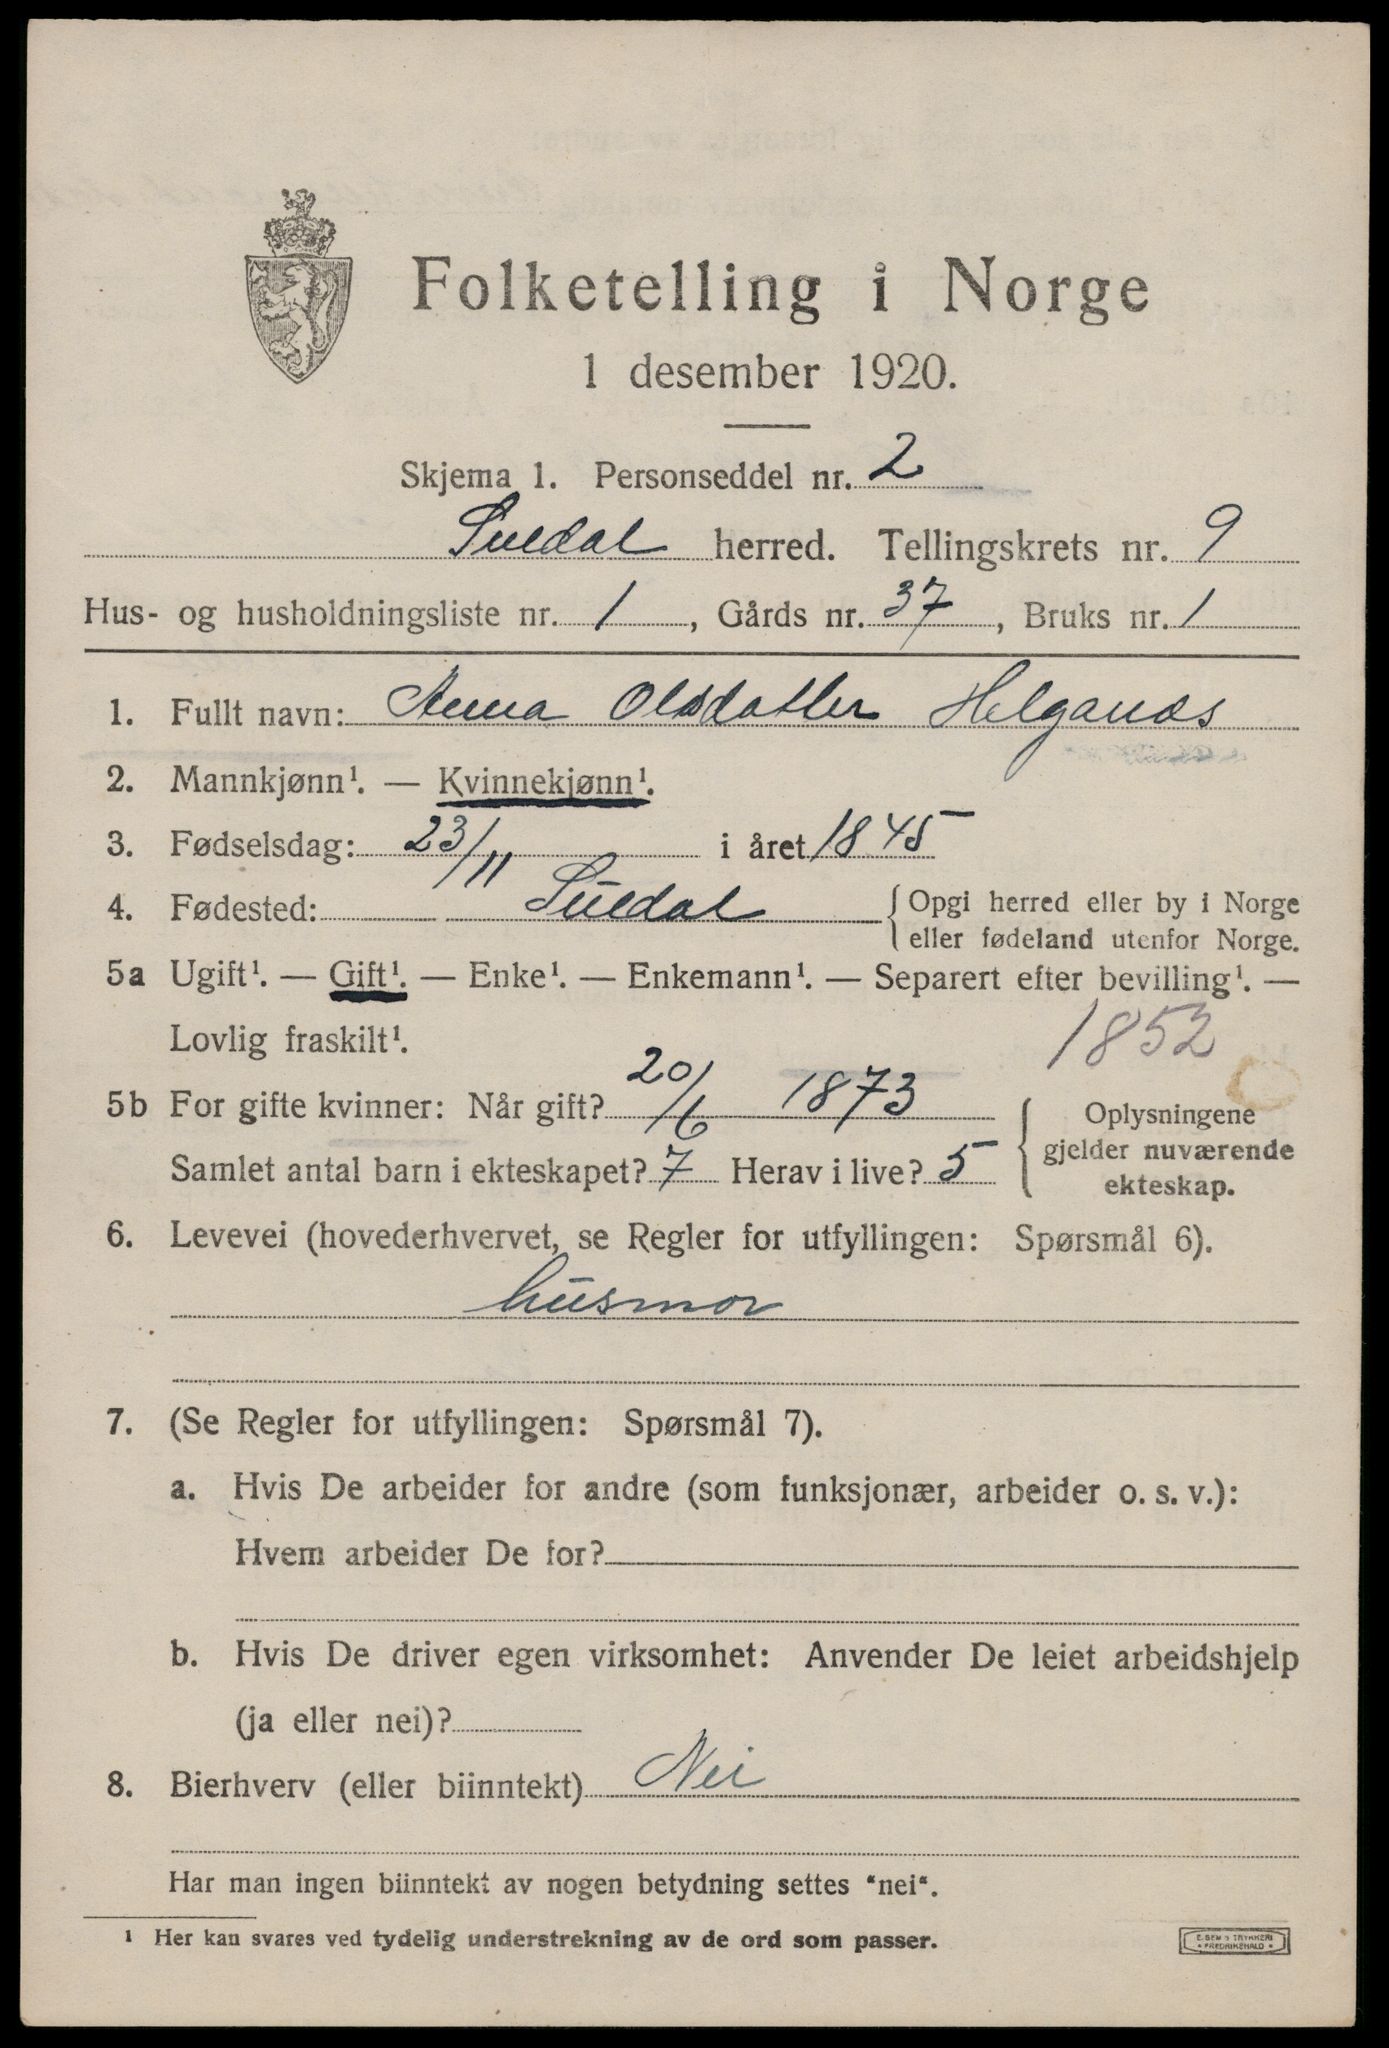 Folketelling i Norge
1 desember 1920.
Skjema 1. Personseddel nr. 2
Suldal herred. Tellingskrets nr. 9
Hus- og husholdningsliste nr. 1, Gårds nr. 37, Bruks nr. 1
1. Fullt navn: Anna Olsdatter Helganes
2. Mannkjønn¹. — Kvinnekjønn¹.
3. Fødselsdag: 23/11 i året 1845
4. Fødested: Suldal { Opgi herred eller by i Norge
eller fødeland utenfor Norge.
5a Ugift¹. — Gift¹. — Enke¹. — Enkemann¹. — Separert efter bevilling¹. —
Lovlig fraskilt¹. 1852
5b For gifte kvinner: Når gift? 20/6 1873
Samlet antal barn i ekteskapet? 7 Herav i live? 5
{ Oplysningene
gjelder nuværende
ekteskap.
6. Levevei (hovederhvervet, se Regler for utfyllingen: Spørsmål 6).
husmor
7. (Se Regler for utfyllingen: Spørsmål 7).
a. Hvis De arbeider for andre (som funksjonær, arbeider o. s. v.):
Hvem arbeider De for?
b. Hvis De driver egen virksomhet: Anvender De leiet arbeidshjelp
(ja eller nei)?
8. Bierhverv (eller biinntekt) Nei
Har man ingen biinntekt av nogen betydning settes "nei".
¹ Her kan svares ved tydelig understrekning av de ord som passer.